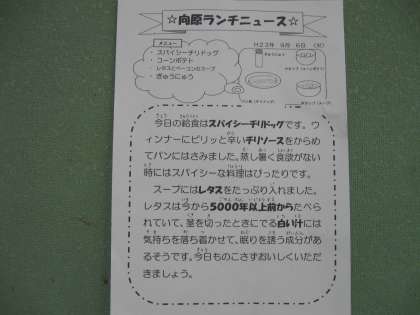 ☆向原ランチニュース☆
メニュー
・スパイシーチリドッグ
・コーンポテト
・レタスとベーコンのスープ
・ぎゅうにゅう
H23年 9月 6日 (火)
今日の給食はスパイシーチリドッグです。ウ
ィンナーにピリッと辛いチリソースをからめ
てパンにはさみました。蒸し暑く食欲がない
時にはスパイシーな料理はぴったりです。
スープにはレタスをたっぷり入れました。
レタスは今から5000年以上前からたべら
れていて、茎を切ったときにでる白い汁には
気持ちを落ち着かせて、眠りを誘う成分があ
るそうです。今日ものこさずおいしくいただ
きましょう。